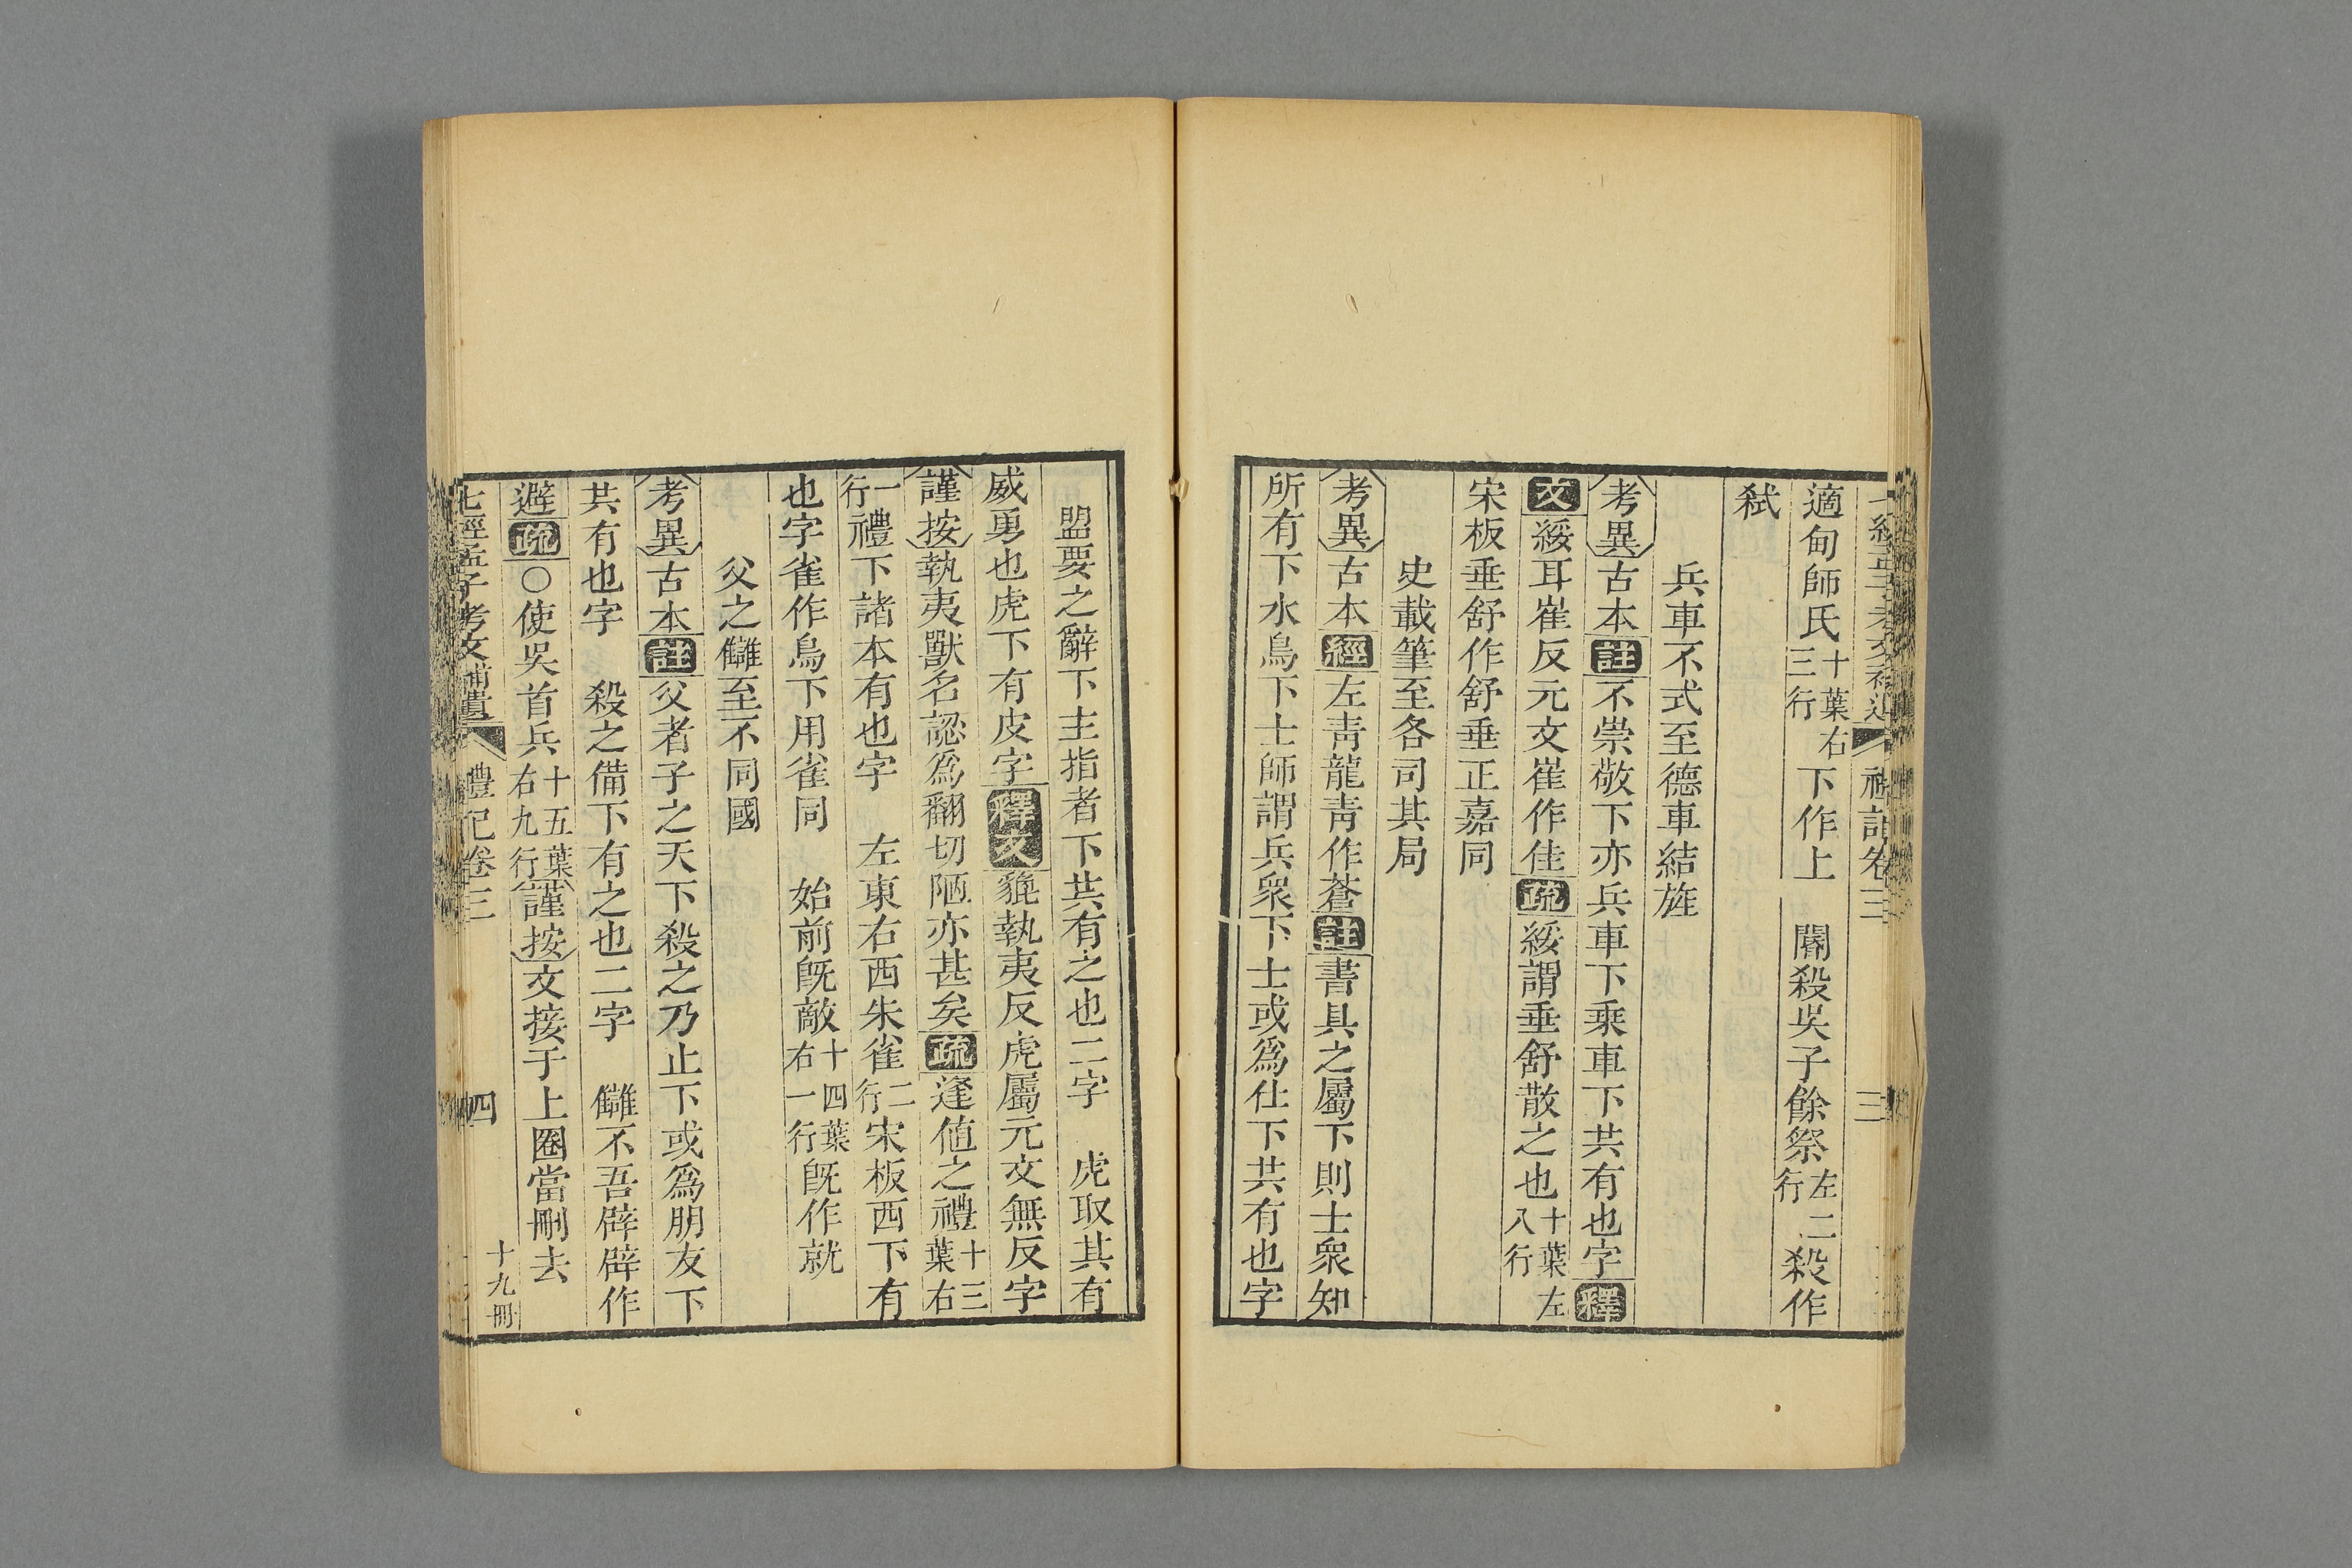 七經孟子考文補遺 禮記卷三 三
適甸師氏十葉右三行下作上 閽殺吳子餘祭左二行殺作
弒
兵車不式至德車結旌
考異古本註不崇敬下亦兵車下乘車下共有也字釋
文綏耳崔反元文崔作佳疏綏謂垂舒散之也十葉左八行
宋板垂舒作舒垂正嘉同
史載筆至各司其局
考異古本經左靑龍靑作蒼註書具之屬下則士衆知
所有下水鳥下士師謂兵衆下士或爲仕下共有也字
盟要之辭下主指者下共有之也二字 虎取其有
威勇也虎下有皮字釋文貔執夷反虎屬元文無反字
謹按執夷獸名認爲翻切陋亦甚矣疏逢値之禮十三葉右
一行禮下諸本有也字 左東右西朱雀二行宋板西下有
也字雀作鳥下用雀同 始前旣敵十四葉右一行旣作就
父之讎至不同國
考異古本註父者子之天下殺之乃止下或爲朋友下
共有也字 殺之備下有之也二字 讎不吾辟辟作
避疏○使吳首兵十五葉右九行謹按文接于上圈當刪去
七經孟子考文補遺 禮記卷三 四 十九冊